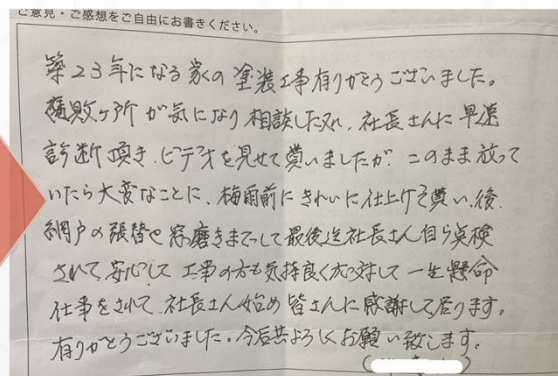 ご意見・ご感想をご自由にお書きください。
築23年になる家の塗装工事有りがとうございました。
腐敗ヶ所が気になり相談した所、社長さんに早速
診断頂き、ビデオを見せて貰いましたが、このまま放って
いたら大変なことに、梅雨前にきれいに仕上げて貰い、後
網戸の張替や窓磨きまでして最後迄社長さん自ら点検
されて、安心して工事の方も気持良く応対して一生懸命
仕事をされて、社長さん始め皆さんに感謝して居ります。
有りがとうございました。今后共よろしくお願い致します。